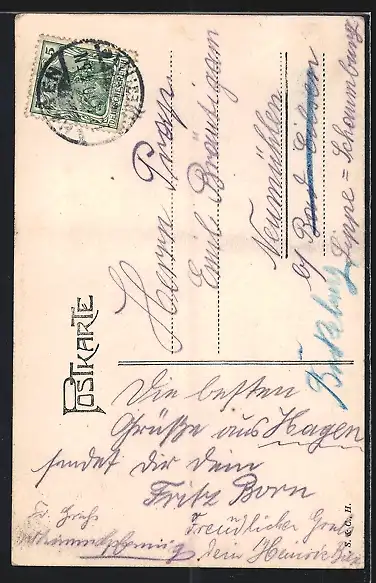 POSTKARTE
Herrn
Emil Bräutigam
Neumühlen
b/ Bad Eilsen
Lippe=Schaumburg
Bückeburg
Die besten
Grüße aus Hagen
sendet dir dein
Fritz Born
Freundlicher Gruß
dem
S. & C., H.
5